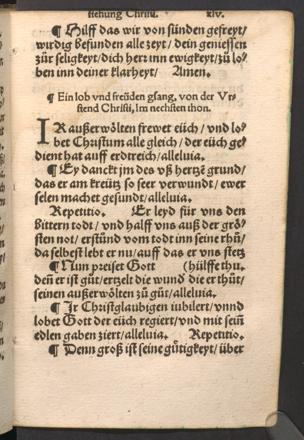 stehung Christi. xlv.
¶ Hilff das wir von sünden gefreyt/
wirdig befunden alle zeyt/ dein geniessen
zůr seligkeyt/dich herr inn ewigkeyt/zů lo⸗
ben inn deiner klarheyt/ Amen.
¶ Ein lob vnd freüden gsang, von der Vr⸗
stend Christi, Im nechsten thon.
IR außerwölten frewet eüch/ vnd lo⸗
bet Christum alle gleich/ der eüch ge⸗
dient hat auff erdtreich/alleluia.
¶ Ey danckt jm des vß hertzē grund/
das er am kreütz so seer verwundt/ ewer
selen machet gesundt/alleluia.
Repetitio. Er leyd für vns den
bittern todt/ vnd halff vns auß der grö⸗
sten not/ erstůnd vom todt inn seine rhů/
da selbest lebt er nu/auff das er vns stetz
¶ Nun preiset Gott (hülffe thu.
deñ er ist gůt/ertzelt die wund die er thůt/
seinen außerwölten zů gůt/alleluia.
¶ Ir Christglaubigen iubilert/vnnd
lobet Gott der eüch regiert/vnd mit seinē
edlen gaben ziert/alleluia. Repetitio.
¶ Denn groß ist seine gůtigkeyt/ über